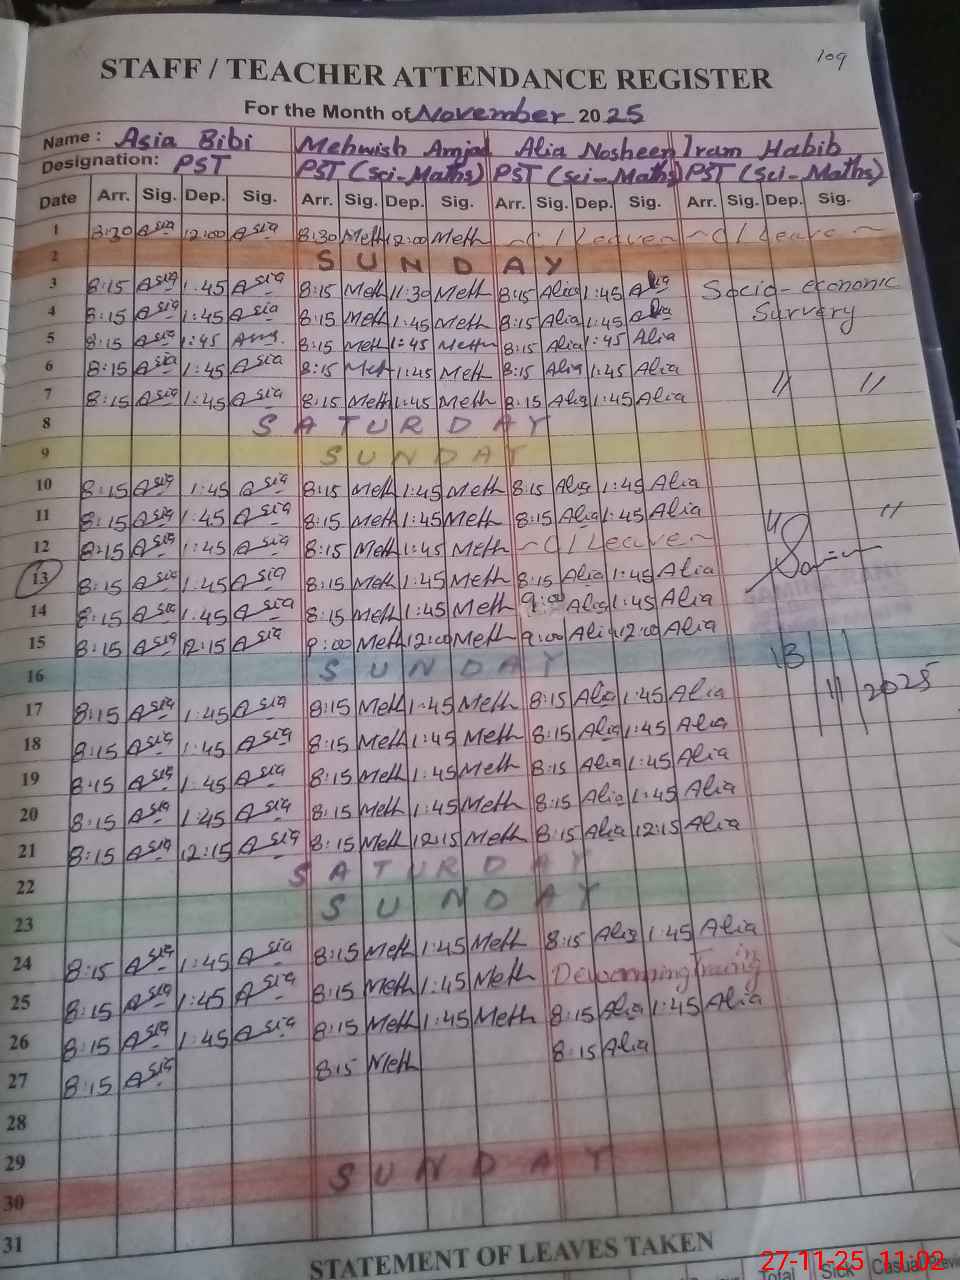 109
STAFF / TEACHER ATTENDANCE REGISTER
For the Month of November 2025
Name : Asia Bibi Mehwish Amjad Alia Nosheen Iram Habib
Designation: PST PST (Sci-Maths) PST (Sci-Maths) PST (Sci-Maths)
Date Arr. Sig. Dep. Sig. Arr. Sig. Dep. Sig. Arr. Sig. Dep. Sig. Arr. Sig. Dep. Sig.
1 8:30 Asia 12:00 Asia 8:30 Meth 12:00 Meth ~C/Leave~ ~C/Leave~
2 SUNDAY
3 8:15 Asia 1:45 Asia 8:15 Meth 11:30 Meth 8:15 Alia 1:45 Alia Socio-economic
4 8:15 Asia 1:45 Asia 8:15 Meth 1:45 Meth 8:15 Alia 1:45 Alia Survery
5 8:15 Asia 1:45 8:15 Meth 1:45 Meth 8:15 Alia 1:45 Alia
6 8:15 Asia 1:45 Asia 8:15 Meth 1:45 Meth 8:15 Alia 1:45 Alia
7 8:15 Asia 1:45 Asia 8:15 Meth 1:45 Meth 8:15 Alia 1:45 Alia " "
8 SATURDAY
9 SUNDAY
10 8:15 Asia 1:45 Asia 8:15 Meth 1:45 Meth 8:15 Alia 1:45 Alia
11 8:15 Asia 1:45 Asia 8:15 Meth 1:45 Meth 8:15 Alia 1:45 Alia " "
12 8:15 Asia 1:45 Asia 8:15 Meth 1:45 Meth ~C/Leave~
13 8:15 Asia 1:45 Asia 8:15 Meth 1:45 Meth 8:15 Alia 1:45 Alia
14 8:15 Asia 1:45 Asia 8:15 Meth 1:45 Meth 9:00 Alia 1:45 Alia
15 8:15 Asia 12:15 Asia 9:00 Meth 12:00 Meth 9:00 Alia 12:00 Alia
16 SUNDAY 13/11/2025
17 8:15 Asia 1:45 Asia 8:15 Meth 1:45 Meth 8:15 Alia 1:45 Alia
18 8:15 Asia 1:45 Asia 8:15 Meth 1:45 Meth 8:15 Alia 1:45 Alia
19 8:15 Asia 1:45 Asia 8:15 Meth 1:45 Meth 8:15 Alia 1:45 Alia
20 8:15 Asia 1:45 Asia 8:15 Meth 1:45 Meth 8:15 Alia 1:45 Alia
21 8:15 Asia 12:15 Asia 8:15 Meth 12:15 Meth 8:15 Alia 12:15 Alia
22 SATURDAY
23 SUNDAY
24 8:15 Asia 1:45 Asia 8:15 Meth 1:45 Meth 8:15 Alia 1:45 Alia
25 8:15 Asia 1:45 Asia 8:15 Meth 1:45 Meth Deworming Training
26 8:15 Asia 1:45 Asia 8:15 Meth 1:45 Meth 8:15 Alia 1:45 Alia
27 8:15 Asia 8:15 Meth 8:15 Alia
28
29
30 SUNDAY
31
STATEMENT OF LEAVES TAKEN
Total Sick Casual
27-11-25 11:02